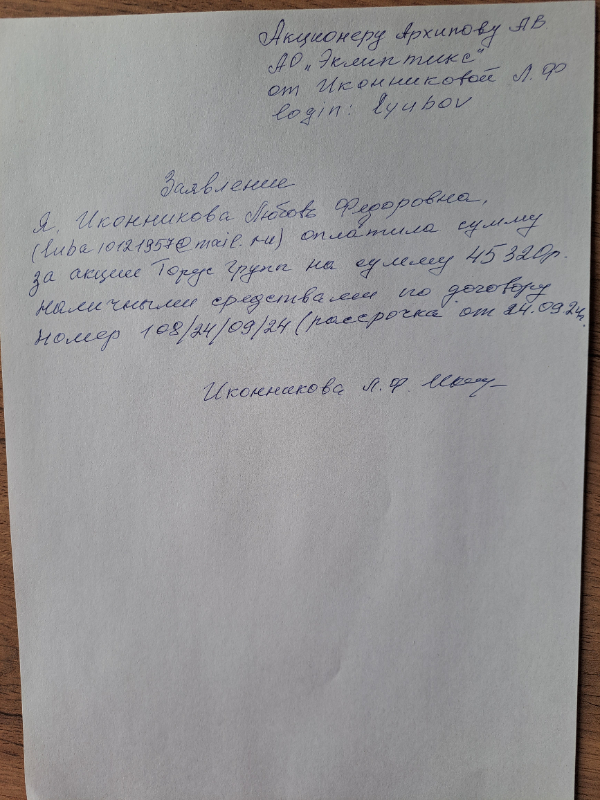 Акционеру Архипову АВ
АО „Эклиптикс"
от Иконниковой Л. Ф
login: lyubov
Заявление
Я, Иконникова Любовь Федоровна,
(luba10121957@mail.ru) оплатила сумму
за акции Торус Групп на сумму 45320р.
наличными средствами по договору
номер 108/24/09/24 (рассрочка от 24.09.24.
Иконникова Л. Ф.